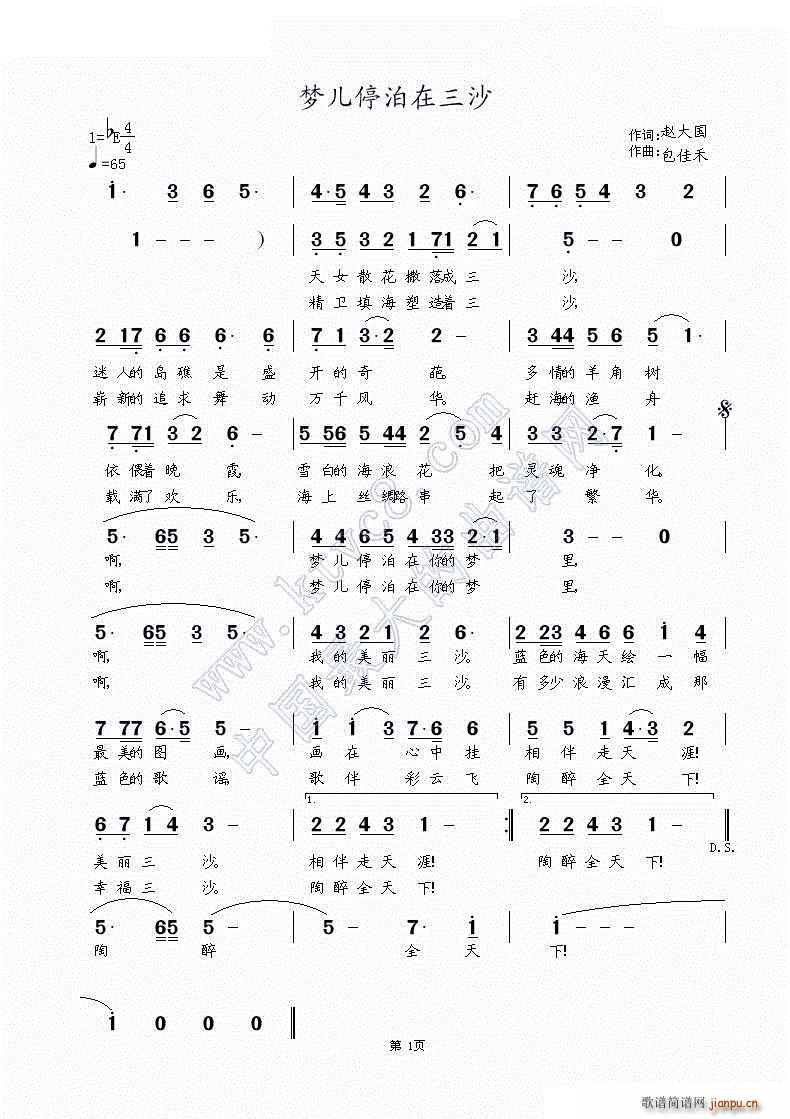 梦儿停泊在三沙
1=♭E 4/4
作词:赵大国
♩=65
作曲:包佳禾
1· 3 6 5· | 4·5 4 3 2 6· | 7 6 5 4 3 2
1 - - - ) | 3 5 3 2 1 71 2 1 | 5 - - 0
天女散花撒落成三 沙,
精卫填海塑造着三 沙,
2 17 6 6 6· 6 | 7 1 3·2 2 - | 3 44 5 6 5 1·
迷人的岛礁是盛 开的奇 葩。 多情的羊角树
崭新的追求舞动 万千风 华。 赶海的渔 舟
7 71 3 2 6 - | 5 56 5 44 2 5 4 | 3 3 2·7 1 -
依偎着晚 霞, 雪白的海浪花 把灵魂净 化。
载满了欢 乐, 海上丝绸路串 起了 繁 华。
5· 65 3 5· | 4 4 6 5 4 33 2·1 | 3 - - 0
啊, 梦儿停泊在你的梦 里,
啊, 梦儿停泊在你的梦 里,
5· 65 3 5· | 4 3 2 1 2 6· | 2 23 4 6 6 1 4
啊, 我的美丽三沙。 蓝色的海天绘一幅
啊, 我的美丽三沙。 有多少浪漫汇成那
7 77 6·5 5 - | 1 1 3 7·6 6 | 5 5 1 4·3 2
最美的图 画, 画在 心中挂 相伴走天 涯!
蓝色的歌 谣, 歌伴 彩云飞 陶醉全天 下!
1. 2.
6 7 1 4 3 - | 2 2 4 3 1 - :‖ 2 2 4 3 1 - ‖
D.S.
美丽三 沙。 相伴走天 涯! 陶醉全天 下!
幸福三 沙。 陶醉全天 下!
5· 65 5 - | 5 - 7· 1 | 1 - - -
陶 醉 全 天 下!
1 0 0 0 ‖
第 1页
www.ktvc8.com
中国最大的曲谱网
歌谱简谱网
jianpu.cn